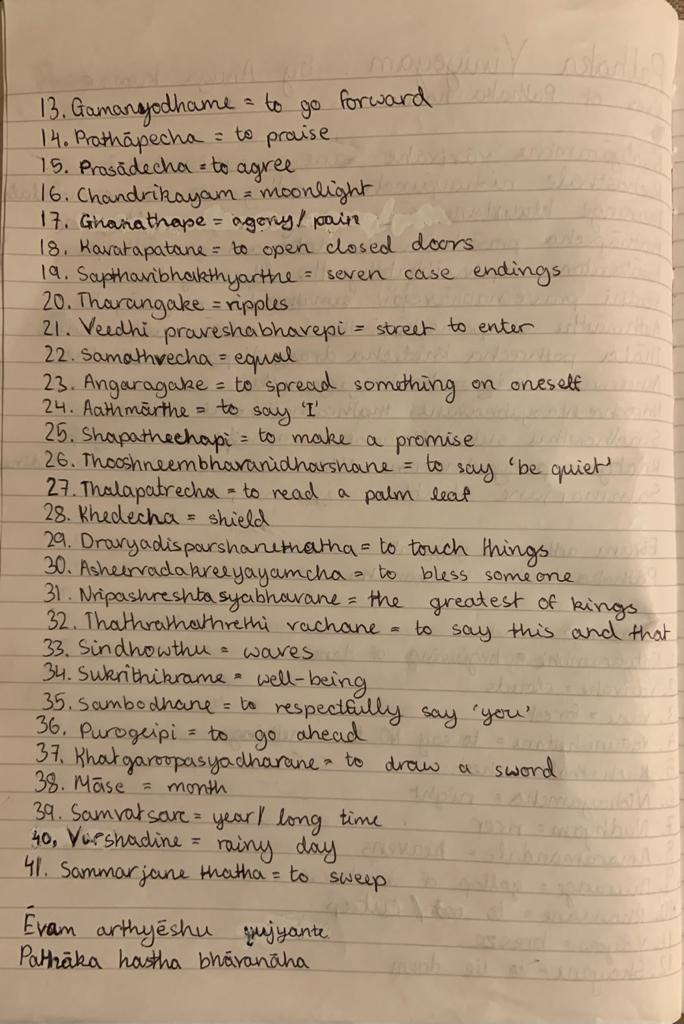 13. Gamanyodhame = to go forward
14. Prathāpecha = to praise
15. Prasādecha = to agree
16. Chandrikayam = moonlight
17. Ghanathape = agony/ pain
18. Kavatapatane = to open closed doors
19. Sapthavibhakthyarthe = seven case endings
20. Tharangake = ripples
21. Veedhi praveshabhavepi = street to enter
22. Samathvecha = equal
23. Angaragake = to spread something on oneself
24. Aathmārthe = to say 'I'
25. Shapathechapi = to make a promise
26. Thooshneembhavanidharshane = to say 'be quiet'
27. Thalapatrecha = to read a palm leaf
28. Khedecha = shield
29. Dravyadisparshanethatha = to touch things
30. Asheervadakreeyayamcha = to bless someone
31. Nripashreshtasyabhavane = the greatest of kings
32. Thathrathathrethi vachane = to say this and that
33. Sindhowthu = waves
34. Sukrithikrame = well-being
35. Sambodhane = to respectfully say 'you'
36. Purogeipi = to go ahead
37. Khatgaroopasyadharane = to draw a sword
38. Māse = month
39. Samvatsare = year/ long time
40. Varshadine = rainy day
41. Sammarjane thatha = to sweep
Ēvam arthyēshu yujyante
Pathāka hastha bhāvanāha